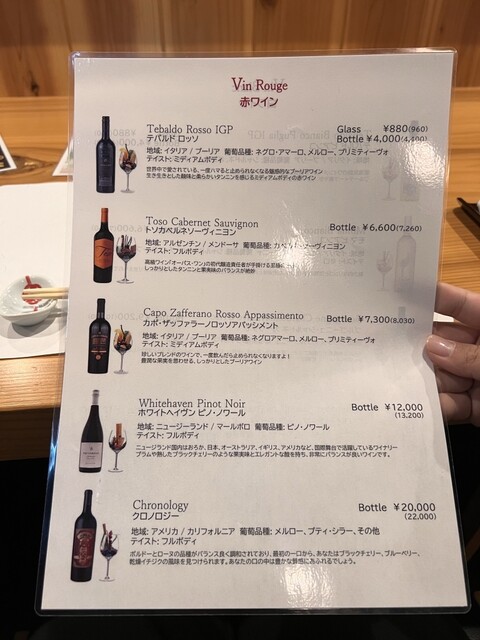 Vin Rouge
赤ワイン
Tebaldo Rosso IGP
テバルド ロッソ
Glass ¥880(960)
Bottle ¥4,000(4,400)
地域: イタリア / プーリア 葡萄品種: ネグロ・アマーロ、メルロー、プリミティーヴォ
テイスト: ミディアムボディ
世界中で愛されている、一度ハマると止められなくなる魅惑的なプーリアワイン
生き生きとした酸味と柔らかいタンニンを感じるミディアムボディの赤ワイン
Toso Cabernet Sauvignon
トソカベルネソーヴィニヨン
Bottle ¥6,600(7,260)
地域: アルゼンチン / メンドーサ 葡萄品種: カベルネ・ソーヴィニヨン
テイスト: フルボディ
高級ワイン「オーパス・ワン」の初代醸造責任者が手掛ける
しっかりとしたタンニンと果実味のバランスが絶妙
Capo Zafferano Rosso Appassimento
カポ・ザッファラーノロッソアパッシメント
Bottle ¥7,300(8,030)
地域: イタリア / プーリア 葡萄品種: ネグロアマーロ、メルロー、プリミティーヴォ
テイスト: ミディアムボディ
珍しいブレンドのワインで、一度飲んだら止められなくなりますよ!
濃厚な果実を思わせる、しっかりとしたプーリアワイン
Whitehaven Pinot Noir
ホワイトヘイヴン ピノ・ノワール
Bottle ¥12,000
(13,200)
地域: ニュージーランド / マールボロ 葡萄品種: ピノ・ノワール
テイスト: フルボディ
ニュージーランド国内はおろか、日本、オーストラリア、イギリス、アメリカなど、国際舞台で活躍しているワイナリー
プラムや熟したブラックチェリーのような果実味とエレガントな酸を持ち、非常にバランスが良いワインです。
Chronology
クロノロジー
Bottle ¥20,000
(22,000)
地域: アメリカ / カリフォルニア 葡萄品種: メルロー、プティ・シラー、その他
テイスト: フルボディ
ボルドーとローヌの品種がバランス良く調和されており、最初の一口から、あなたはブラックチェリー、ブルーベリー、
乾燥イチジクの風味を見つけられます。あなたの口の中は豊かな質感にあふれるでしょう。